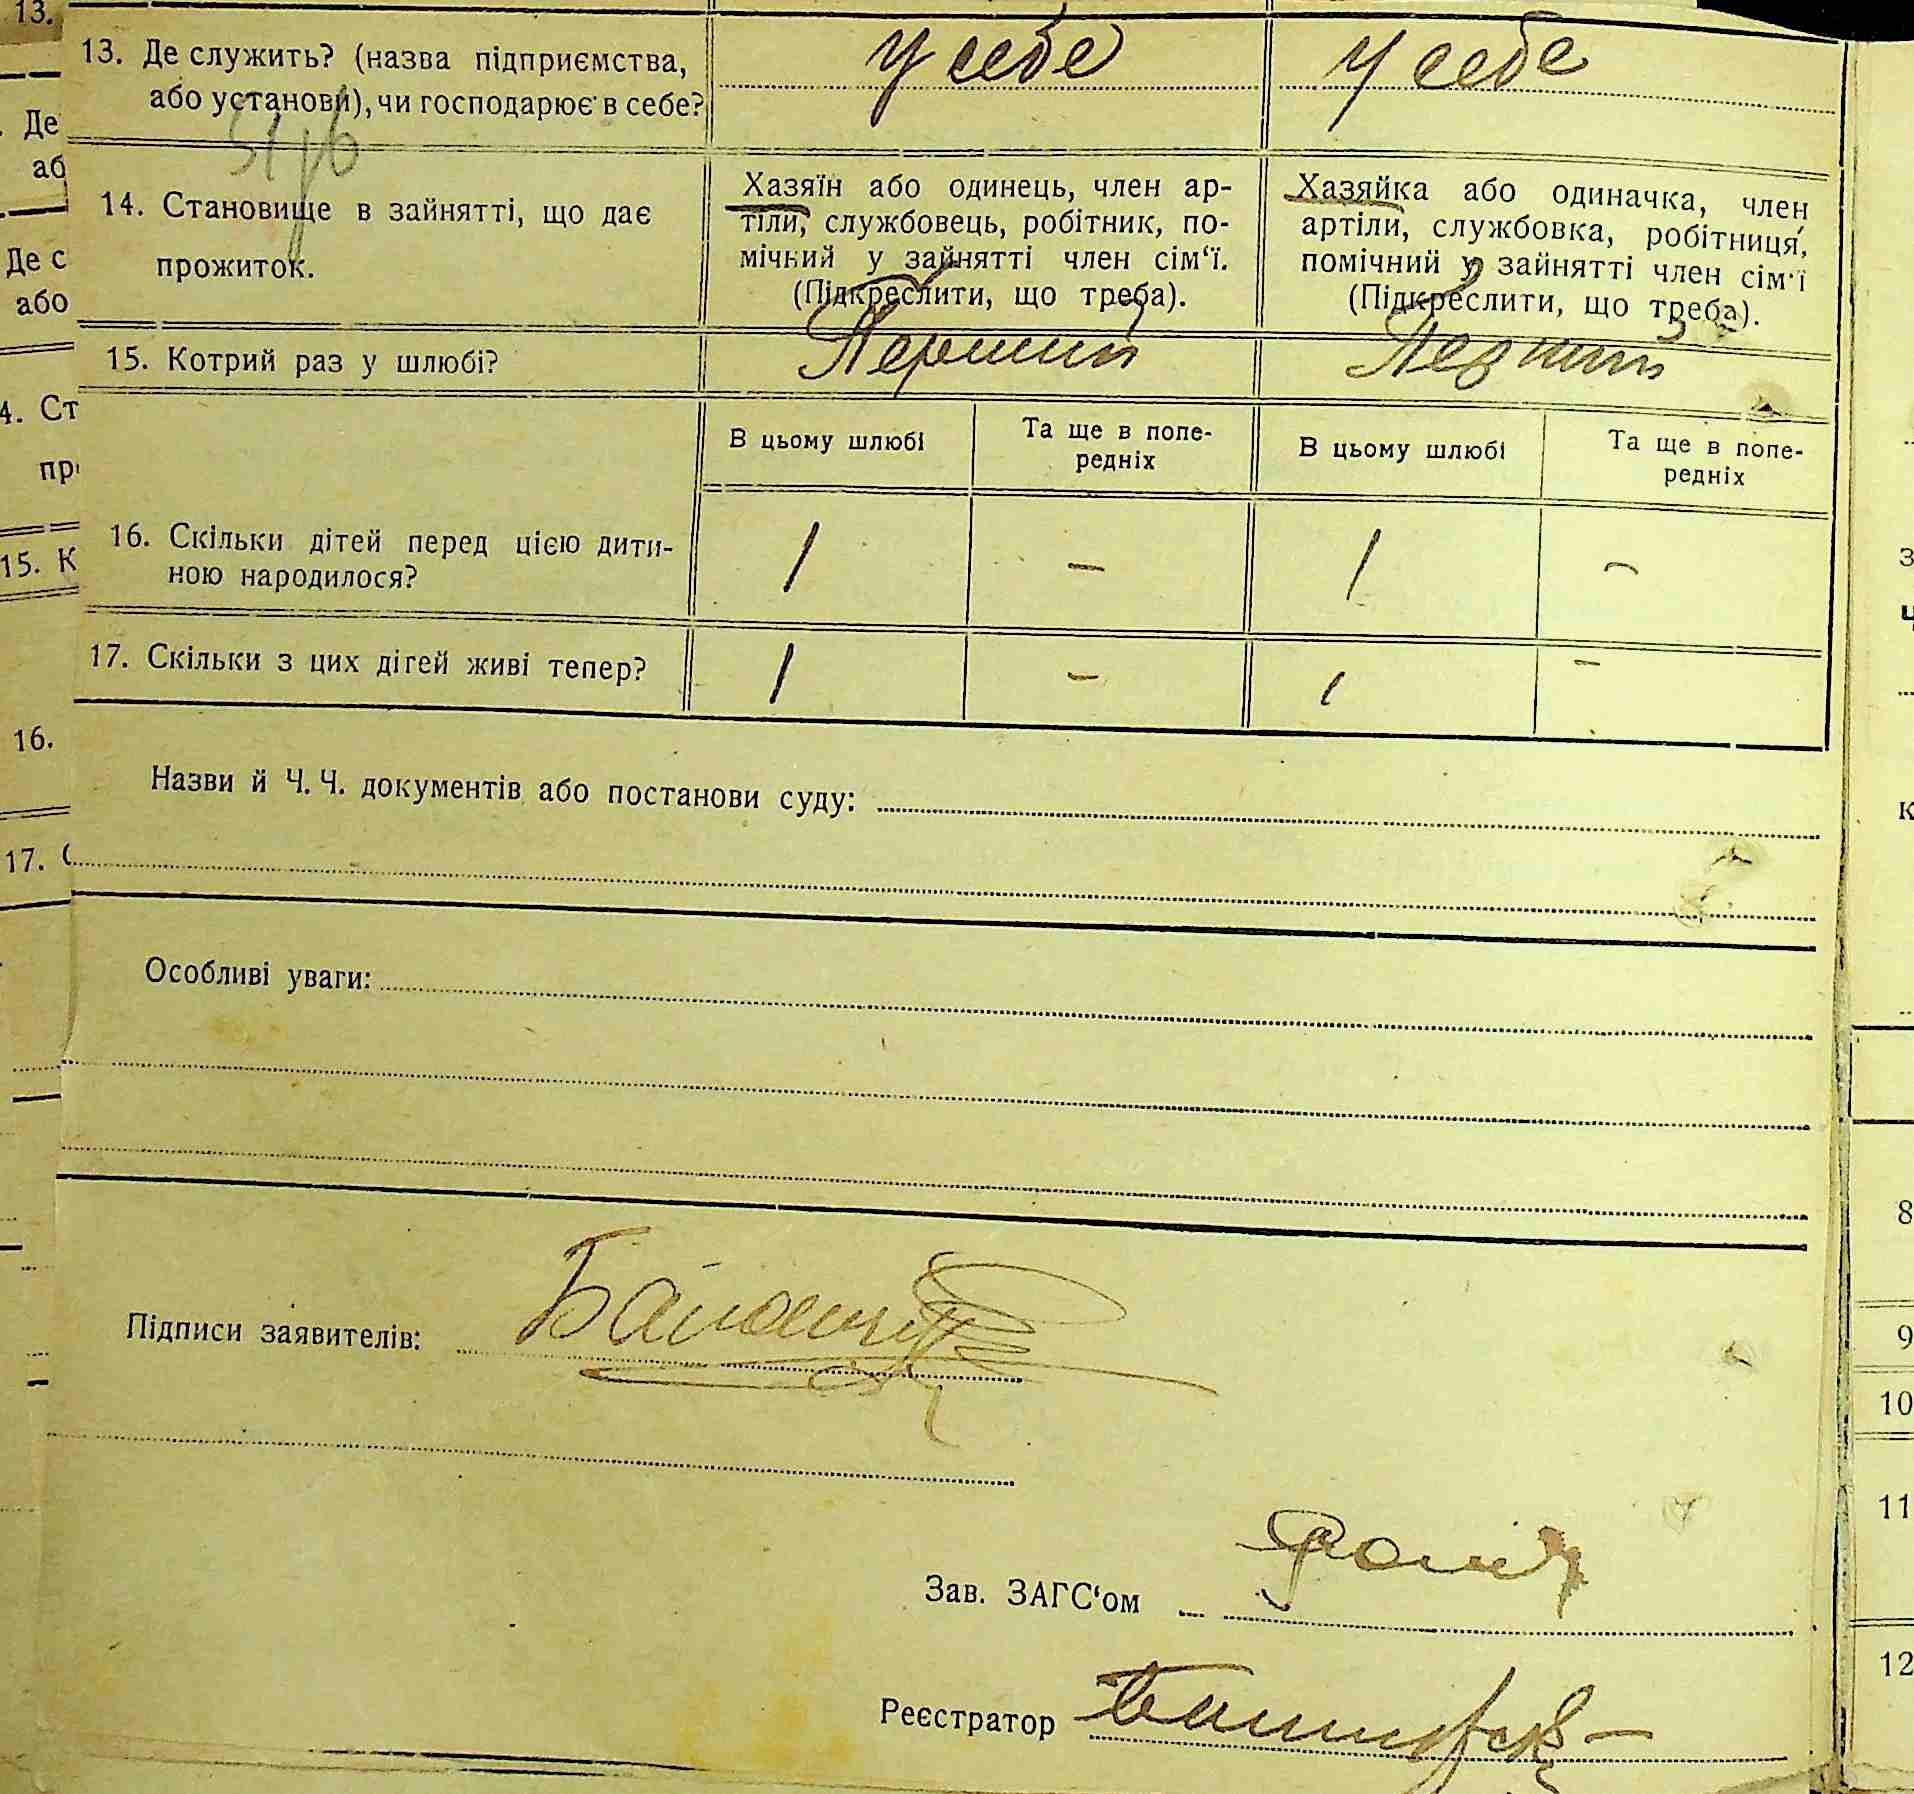 13. Де служить? (назва підприємства,
або установи), чи господарює в себе?
у себе
у себе
14. Становище в зайнятті, що дає
прожиток.
Хазяїн або одинець, член ар-
тіли, службовець, робітник, по-
мічний у зайнятті член сім‘ї.
(Підкреслити, що треба).
Хазяйка або одиначка, член
артіли, службовка, робітниця,
помічний у зайнятті член сім‘ї
(Підкреслити, що треба).
15. Котрий раз у шлюбі?
Перший
Перший
В цьому шлюбі
Та ще в попе-
редніх
В цьому шлюбі
Та ще в попе-
редніх
16. Скільки дітей перед цією дити-
ною народилося?
1
-
1
-
17. Скільки з цих дігей живі тепер?
1
-
1
-
Назви й Ч. Ч. документів або постанови суду:
Особливі уваги:
Підписи заявителів:
Зав. ЗАГС‘ом
Реєстратор
13.
Де
аб
Де с
або
4. Ст
пр
15. К
16.
17.
8
9
10
11
12